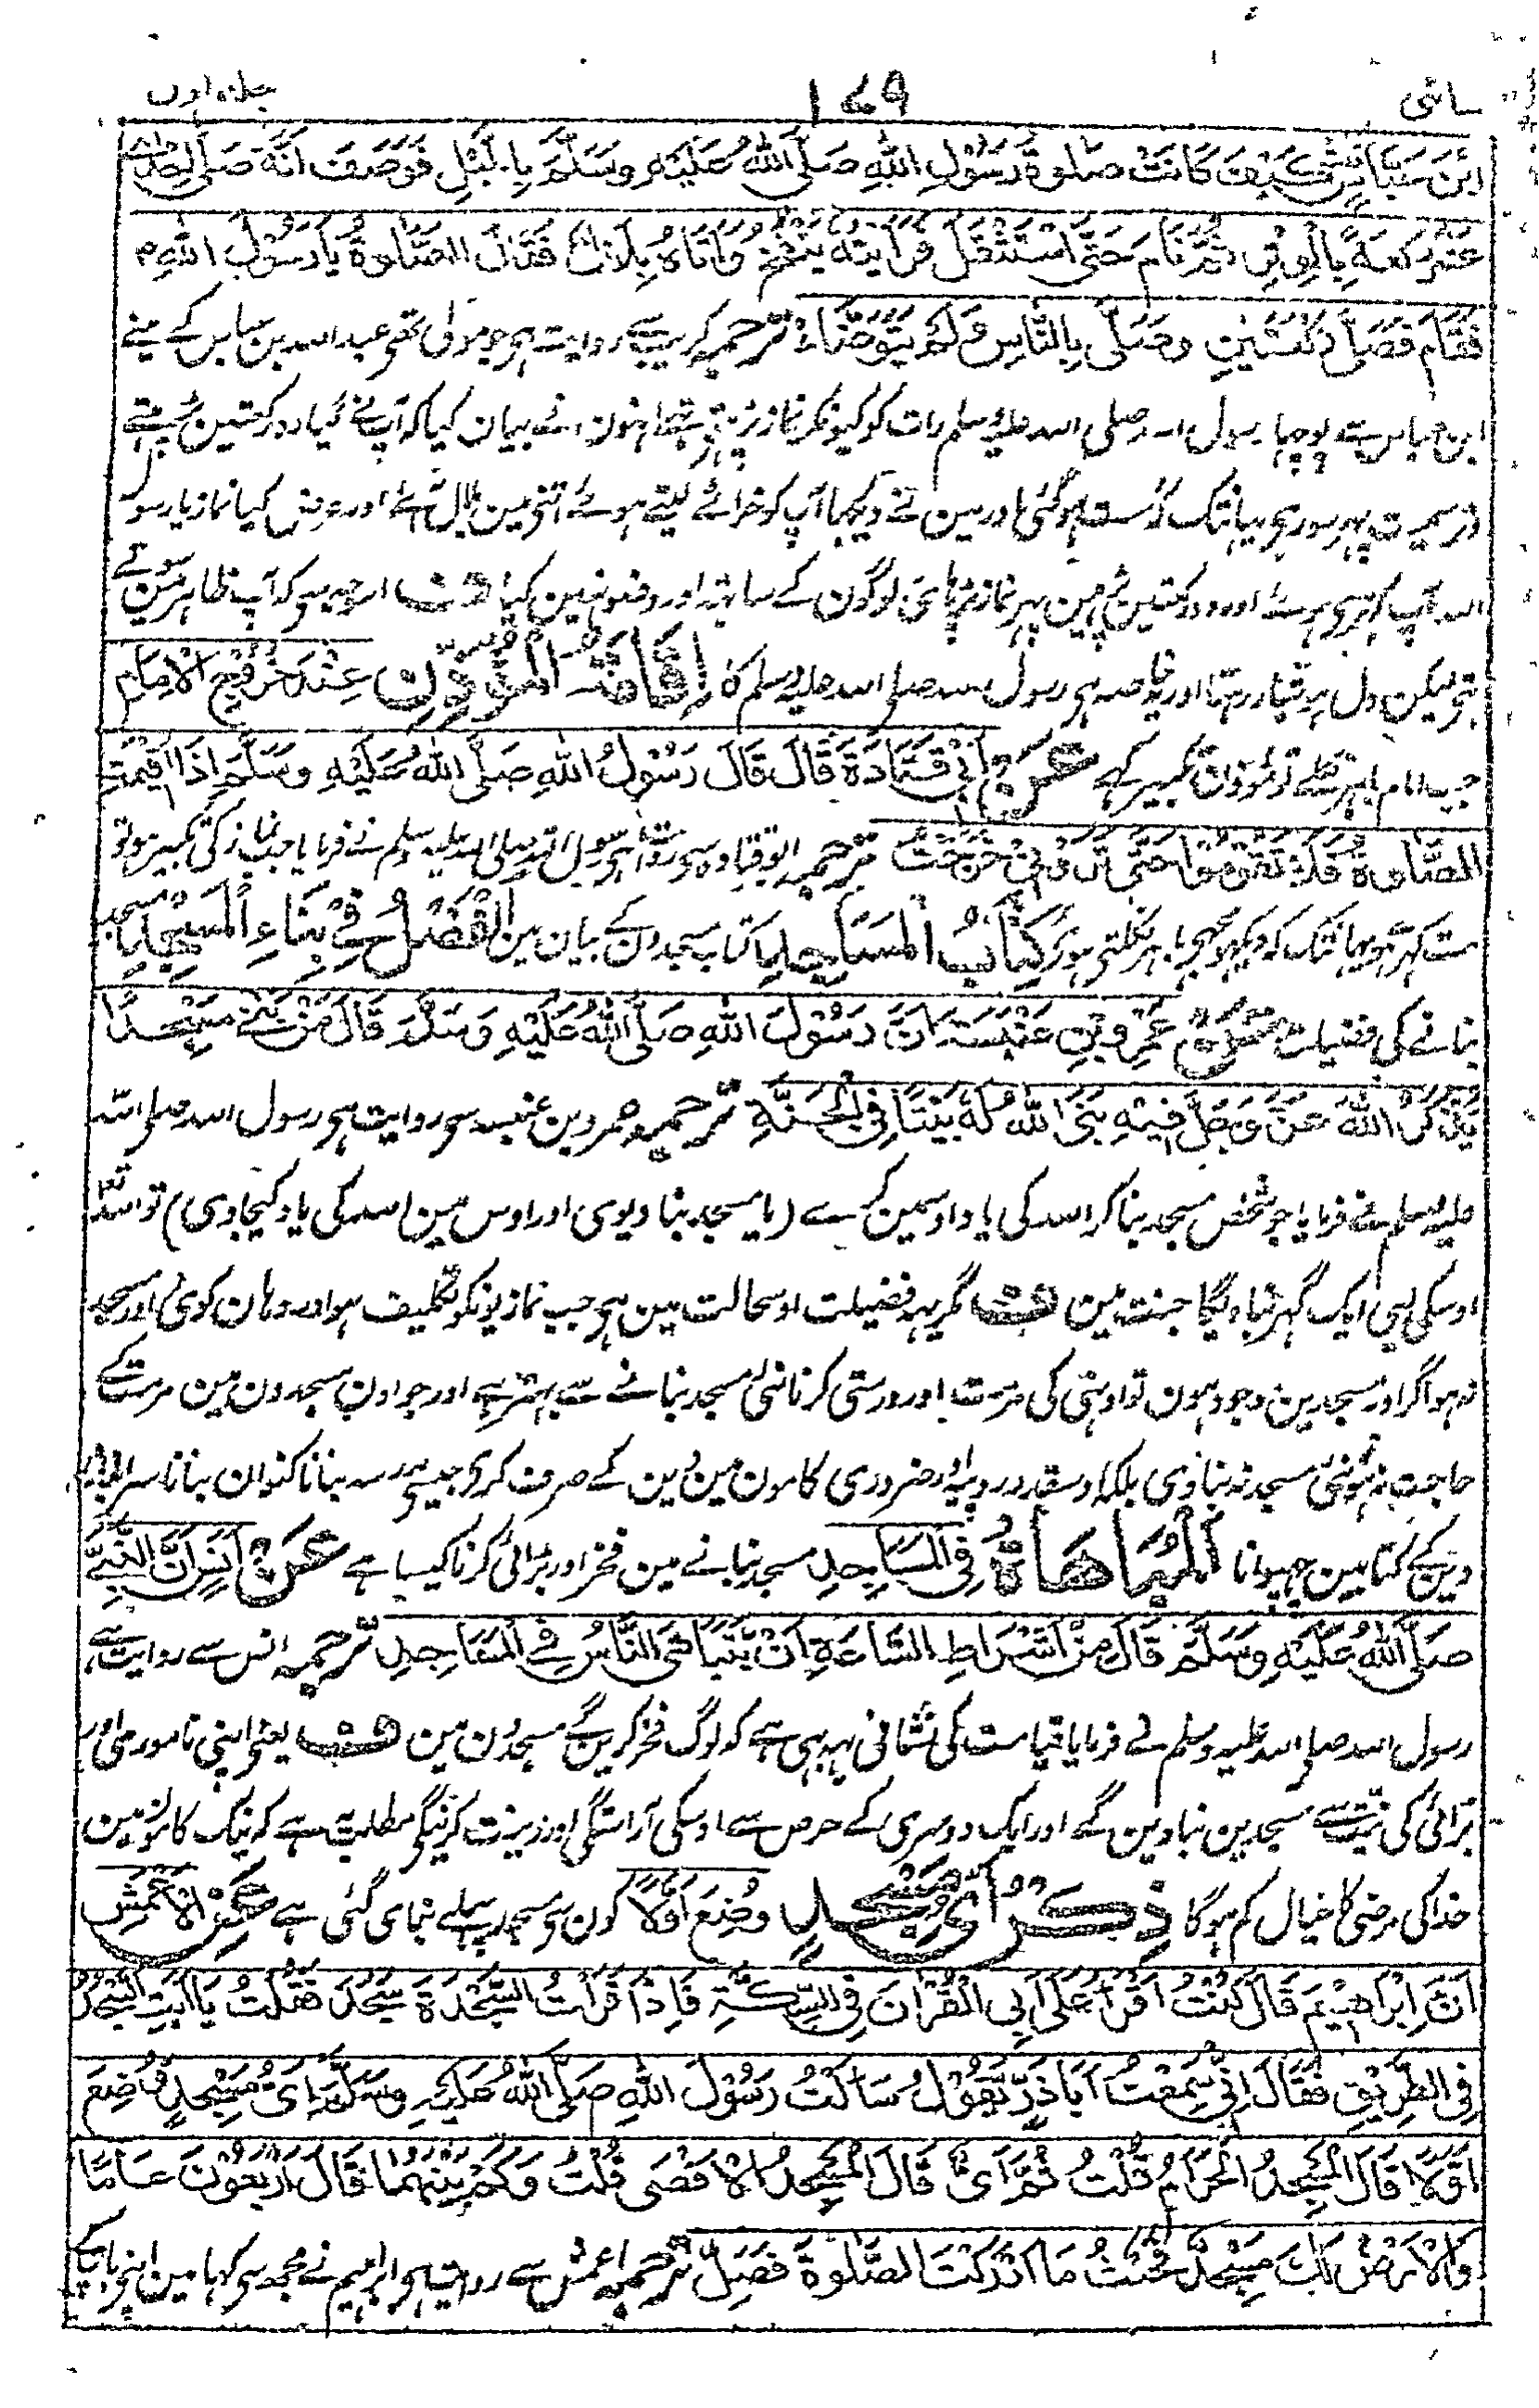 نسائی ۱۷۹ جلد اول
ابْنَ عَبَّاسٍ كَيْفَ كَانَتْ صَلٰوةُ رَسُوْلِ اللهِ صَلَّى اللهُ عَلَيْهِ وَسَلَّمَ بِاللَّيْلِ فَوَصَفَ اَنَّهٗ صَلّٰى اِحْدٰى
عَشْرَةَ رَكْعَةً بِالْوِتْرِ ثُمَّ نَامَ حَتَّى اسْتَثْقَلَ فَرَاَيْتُهٗ يَنْفُخُ وَاَتَاهُ بِلَالٌ فَقَالَ الصَّلٰوةُ يَا رَسُوْلَ اللهِ
فَقَامَ فَصَلّٰى رَكْعَتَيْنِ وَصَلّٰى بِالنَّاسِ وَلَمْ يَتَوَضَّأْ ترجمہ کریب سے روایت ہی جو مولی تھی عبد اللہ بن عباس کے مینے
ابن عباس سے پوچھا رسول اللہ صلی اللہ علیہ وسلم رات کو کیونکر نماز پڑہتے تھے انہون نے بیان کیا کہ آپنے گیارہ رکعتین پڑہین
وتر سمیت پہر سو رہی یہانتک کہ سست ہو گئی اور مین نے دیکھا آپ کو خراٹے لیتے ہوئے اتنے مین بلال آئے اور عرض کیا نماز یا رسول
اللہ آپ کھڑی ہوئے اور دو رکعتین پڑہین پہر نماز پڑہائی لوگون کے ساتھ اور وضو نہین کیا ف اسوجہ سے کہ آپ ظاہر مین سوتے
تھے لیکن دل ہوشیار رہتا اور یہ خاصہ ہی رسول اللہ صلی اللہ علیہ وسلم کا اِقَامَةُ الْمُؤَذِّنِ عِنْدَ خُرُوْجِ الْاِمَامِ
جب امام باہر نکلے تو مؤذن تکبیر کہے عَنْ اَبِيْ قَتَادَةَ قَالَ قَالَ رَسُوْلُ اللهِ صَلَّى اللهُ عَلَيْهِ وَسَلَّمَ اِذَا اُقِيْمَتِ
الصَّلٰوةُ فَلَا تَقُوْمُوْا حَتّٰى تَرَوْنِيْ خَرَجْتُ ترجمہ ابو قتادہ سے روایت ہی رسول اللہ صلی اللہ علیہ وسلم نے فرمایا جب نماز کی تکبیر ہو تو
مت کھڑے ہو یہانتک کہ دیکھو مجھی باہر نکلتی ہوئے كِتَابُ الْمَسَاجِدِ کتاب مسجدون کے بیان مین اَلْفَضْلُ فِيْ بِنَاءِ الْمَسْجِدِ مسجد
بنانے کی فضیلت عَنْ عَمْرِو بْنِ عَنْبَسَةَ اَنَّ رَسُوْلَ اللهِ صَلَّى اللهُ عَلَيْهِ وَسَلَّمَ قَالَ مَنْ بَنٰى مَسْجِدًا
يُذْكَرُ اللهُ عَزَّ وَجَلَّ فِيْهِ بَنَى اللهُ لَهٗ بَيْتًا فِي الْجَنَّةِ ترجمہ عمرو بن عنبسہ سے روایت ہی رسول اللہ صلی اللہ
علیہ وسلم نے فرمایا جو شخص مسجد بنا کر اللہ کی یاد اوسمین کرے (یا مسجد بنا دیوی اور اوس مین اللہ کی یاد کیجاوی) تو اللہ
اوسکی لیی ایک گہر بناویگا جنت مین ف مگر یہہ فضیلت اوسحالت مین ہی جب نمازیونکو تکلیف ہو اور وہان کوئی اور مسجد
نہ ہو اگر اور مسجدین موجود ہون تو اونہی کی مرمت اور درستی کرنا نئی مسجد بنانے سے بہتر ہے اور جو اون مسجدون مین مرمت کے
حاجت نہو تو نئی مسجد نہ بناوی بلکہ اوسقدر روپیہ اور ضروری کامون مین دین کے صرف کری جیسی مدرسہ بنانا کنوان بنانا سرا
دین کے کتابین چھپوانا اَلْمُبَاهَاةُ فِي الْمَسَاجِدِ مسجد بنانے مین فخر اور بڑائی کرنا کیسا ہے عَنْ اَنَسٍ اَنَّ النَّبِيَّ
صَلَّى اللهُ عَلَيْهِ وَسَلَّمَ قَالَ مِنْ اَشْرَاطِ السَّاعَةِ اَنْ يَتَبَاهَى النَّاسُ فِي الْمَسَاجِدِ ترجمہ انس سے روایت ہے
رسول اللہ صلی اللہ علیہ وسلم نے فرمایا قیامت کی نشانی یہہ بھی ہے کہ لوگ فخر کرینگے مسجدون مین ف یعنی اپنی ناموری اور
بڑائی کی نیت سے مسجدین بناوین گے اور ایک دوسری کے حرص سے اوسکی آراستگی اور زینت کرینگی مطلب یہ ہے کہ نیک کامونمین
خدا کی مرضی کا خیال کم ہوگا ذِكْرُ اَيِّ مَسْجِدٍ وُضِعَ اَوَّلًا کون سی مسجد پہلے بنائی گئی ہے عَنِ الْاَعْمَشِ
عَنْ اِبْرَاهِيْمَ قَالَ كُنْتُ اَقْرَأُ عَلٰى اَبِي الْقُرْاٰنَ فِي السِّكَّةِ فَاِذَا قَرَأْتُ السَّجْدَةَ سَجَدَ فَقُلْتُ يَا اَبَتِ اَتَسْجُدُ
فِي الطَّرِيْقِ فَقَالَ اِنِّيْ سَمِعْتُ اَبَا ذَرٍّ يَقُوْلُ سَاَلْتُ رَسُوْلَ اللهِ صَلَّى اللهُ عَلَيْهِ وَسَلَّمَ اَيُّ مَسْجِدٍ وُضِعَ
اَوَّلًا قَالَ الْمَسْجِدُ الْحَرَامُ قُلْتُ ثُمَّ اَيٌّ قَالَ الْمَسْجِدُ الْاَقْصٰى قُلْتُ وَكَمْ بَيْنَهُمَا قَالَ اَرْبَعُوْنَ عَامًا
وَالْاَرْضُ لَكَ مَسْجِدٌ فَحَيْثُ مَا اَدْرَكْتَ الصَّلٰوةَ فَصَلِّ ترجمہ اعمش سے روایت ہی ابراہیم نے مجھ سے کہا مین اپنی باپ کے